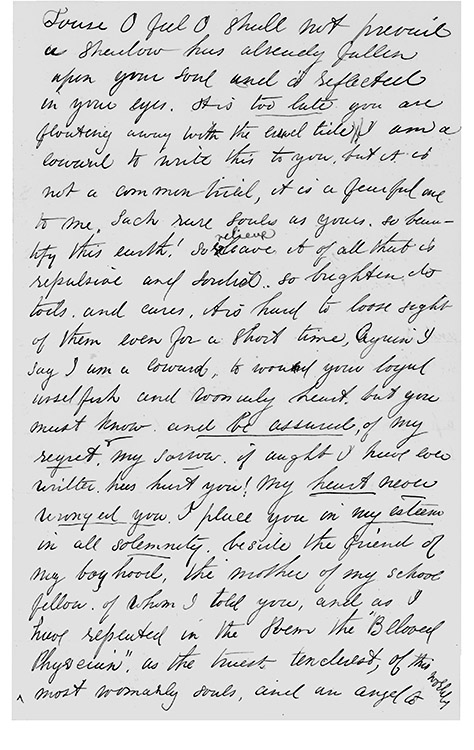 Louise I feel I shall not prevail
a shadow has already fallen
upon your soul and is reflected
in your eyes. It is too late you are
floating away with the cruel tide, I am a
coward to write this to you, but it is
not a common trial, it is a fearful one
to me, Such rare souls as yours. so beau-
tify this earth! So relieve it of all that is
repulsive and sordid. so brighten its
toils. and cares, it is hard to loose sight
of them even for a short time, Again I
say I am a coward, to wound your loyal
unselfish and womanly heart, but you
must know and be assured, of my
regret, & my sorrow. if aught I have ever
written has hurt you! My heart never
wronged you. I place you in my esteem
in all solemnity. beside the friend of
my boyhood, the mother of my school
fellow. of whom I told you, and as I
have repeated in the poem the "Beloved
Physician". as the truest, tenderest, of this worlds
most womanly souls, and an angel to